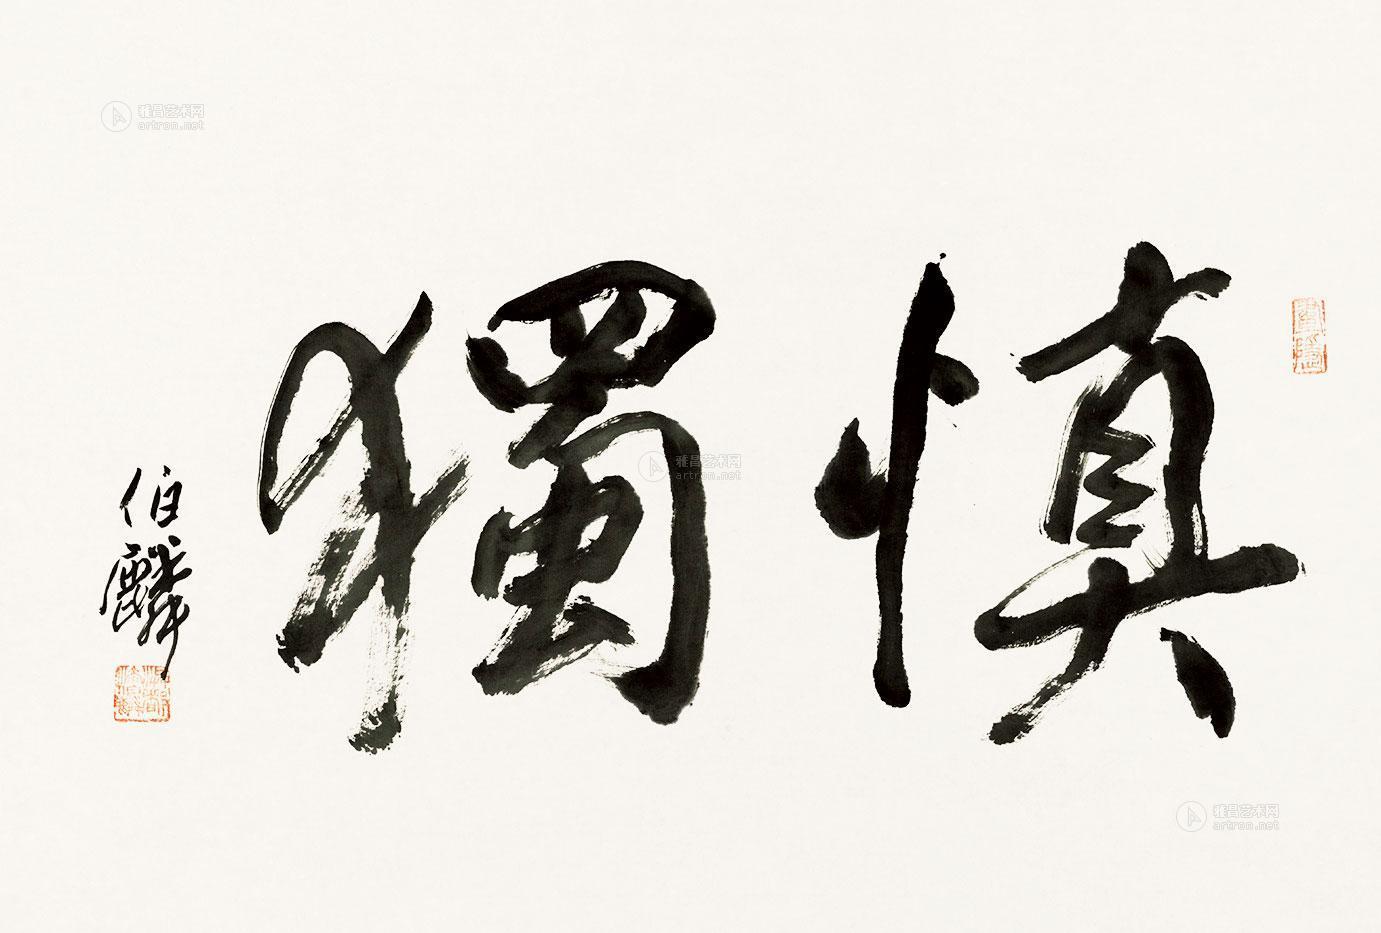 慎獨
伯麟
雅昌艺术网
artron.net
雅昌艺术网
artron.net
雅昌艺术网
artron.net